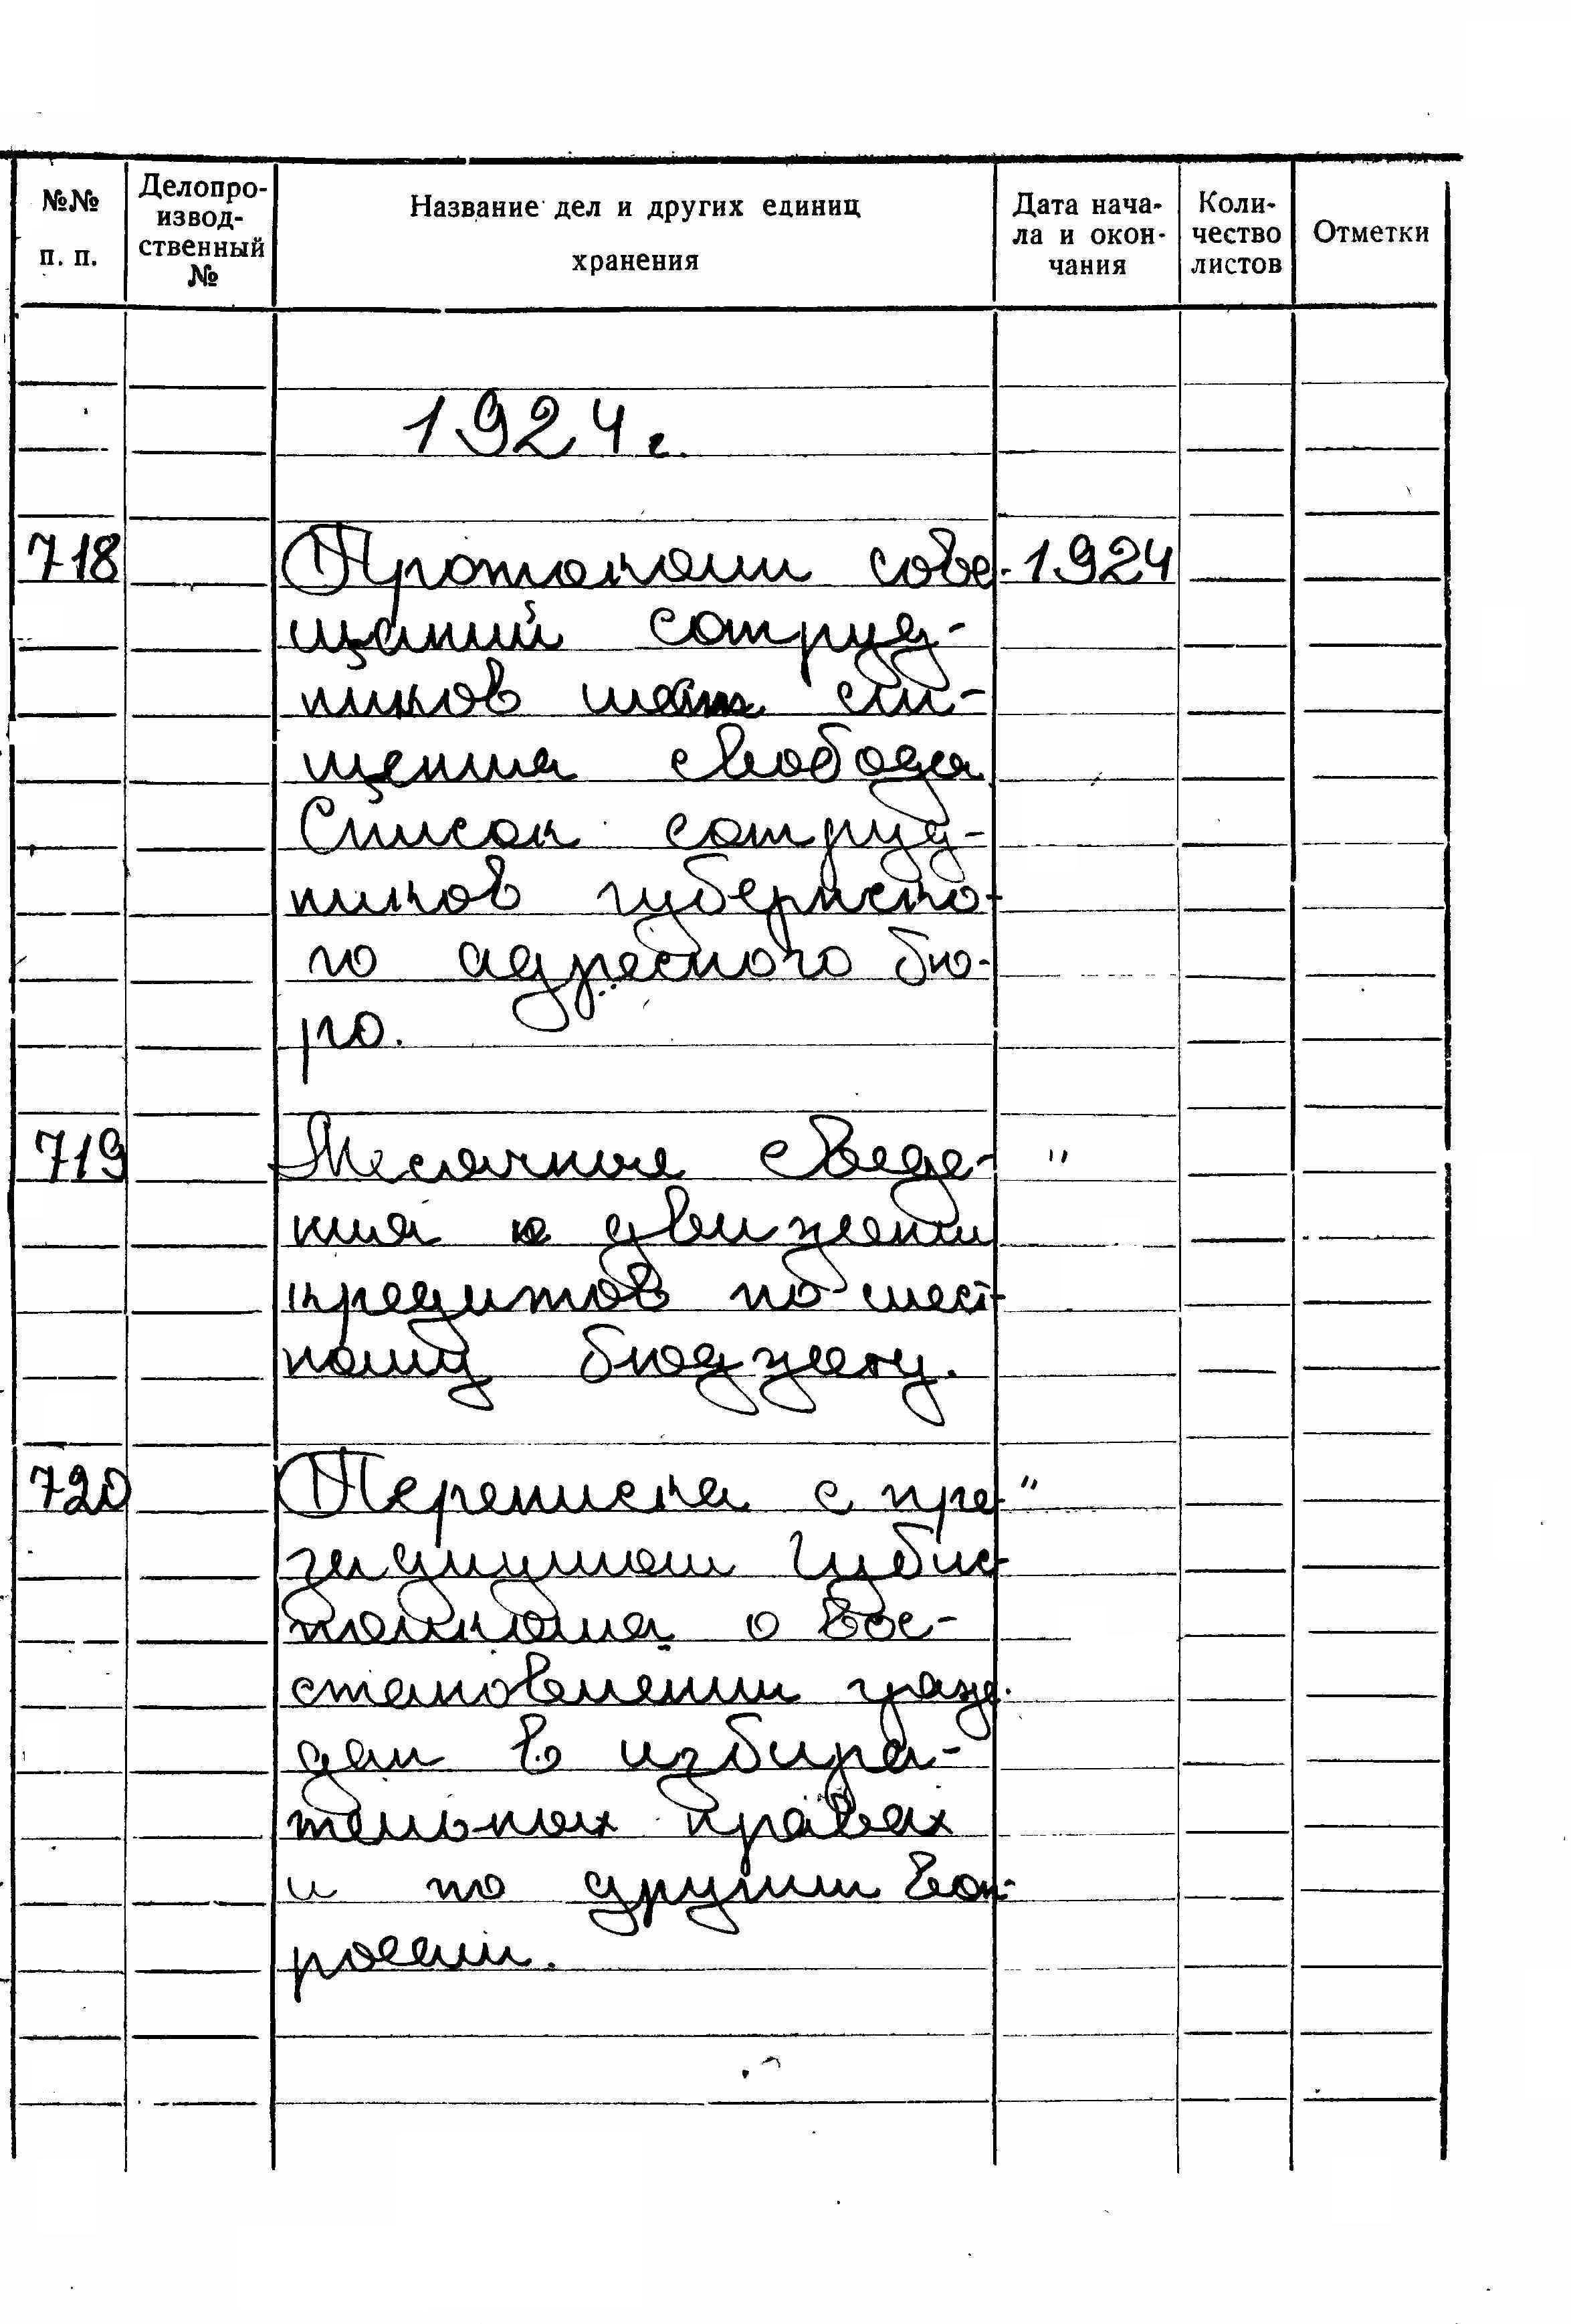 №№ п. п.
Делопро-
извод-
ственный
№
Название дел и других единиц
хранения
Дата нача-
ла и окон-
чания
Коли-
чество
листов
Отметки
1924 г.
718 Протоколы сове- 1924
щаний сотруд-
ников мест ли-
щения свободы
Список сотруд-
ников губернско-
го адресного бю-
ро.
719 Месячные сведе- "
ния о движении
кредитов по мест-
ному бюджету.
720 Переписка с пре- "
зидиумом Губис-
полкома о вос-
становлении граж-
дан в избира-
тельных правах
и по другим воп-
росам.